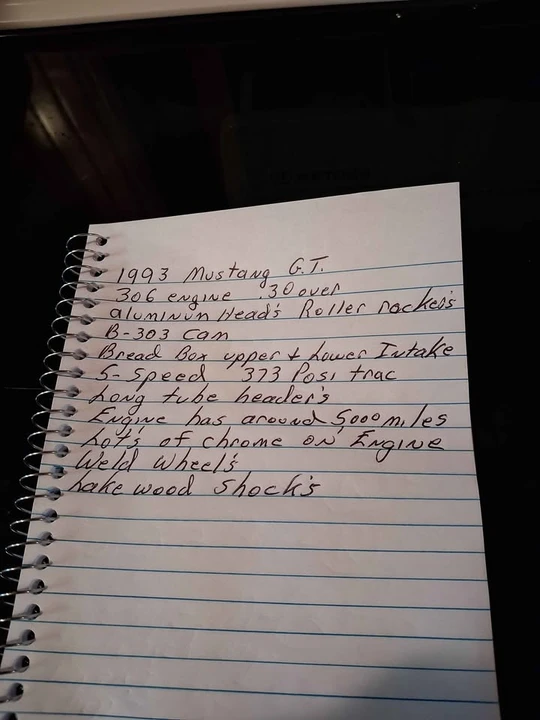 1993 Mustang G.T.
306 engine .30 over
aluminum Head's Roller rocker's
B-303 cam
Bread Box upper + Lower Intake
5-speed 373 Posi trac
Long tube header's
Engine has around 5000 miles
Lot's of chrome on Engine
Weld Wheel's
Lake wood shock's